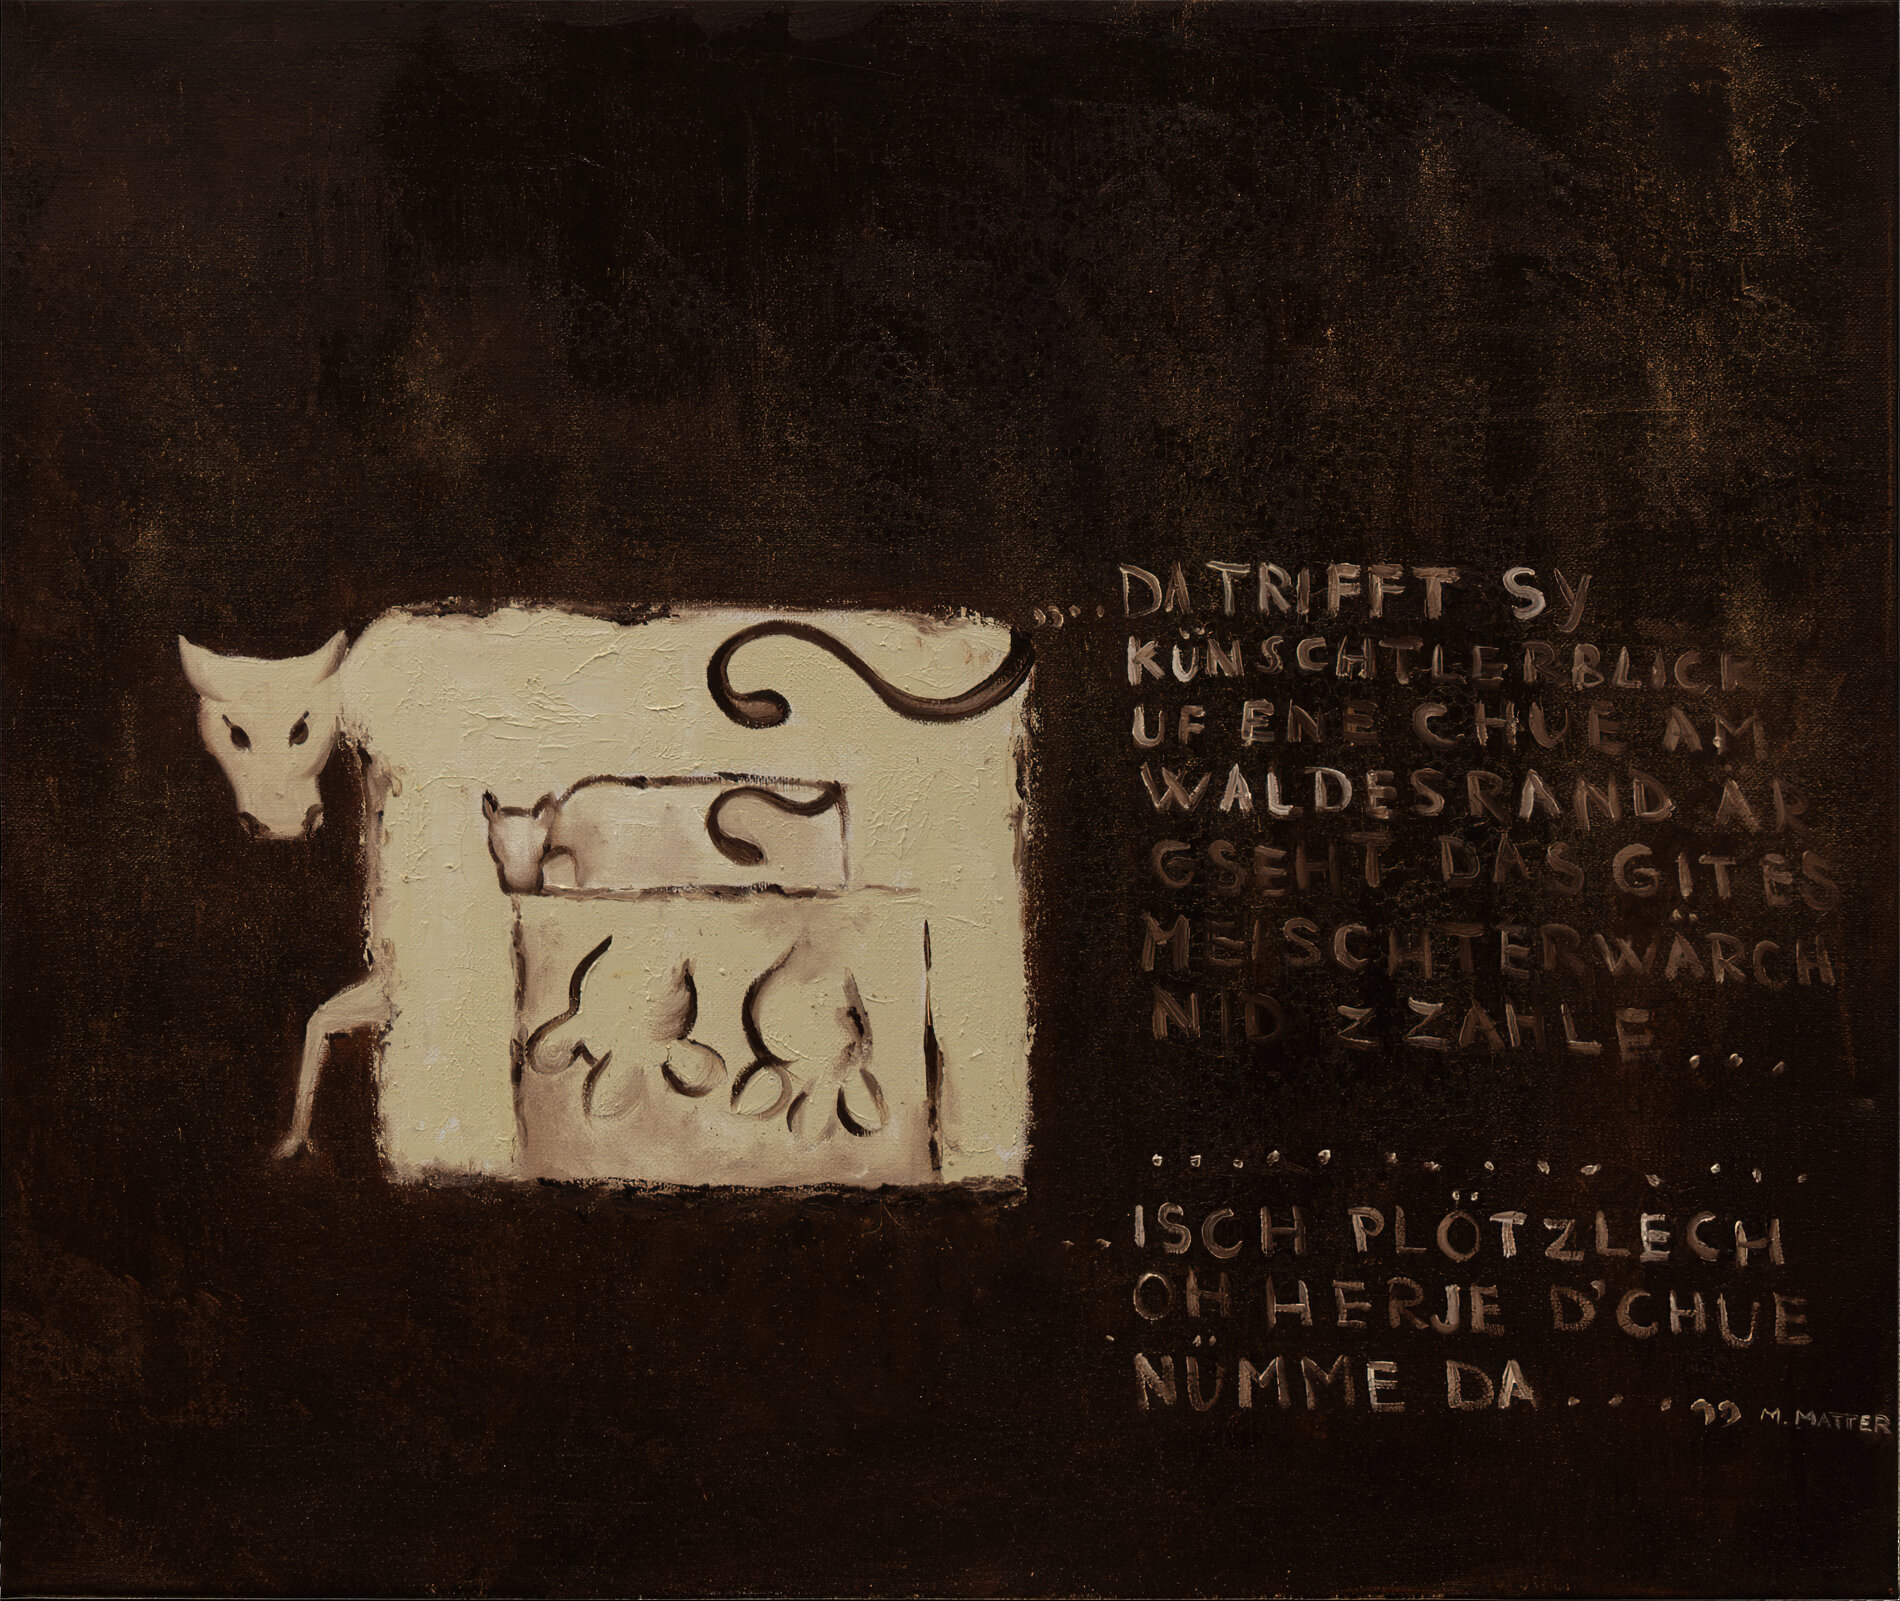 ,,...DA TRIFFT SY
KÜNSCHTLERBLICK
UF ENE CHUE AM
WALDESRAND ÄR
GSEHT DAS GITES
MEISCHTERWÄRCH
NID Z ZAHLE ...
..............
..ISCH PLÖTZLECH
OH HERJE D'CHUE
NÜMME DA ....” M. MATTER